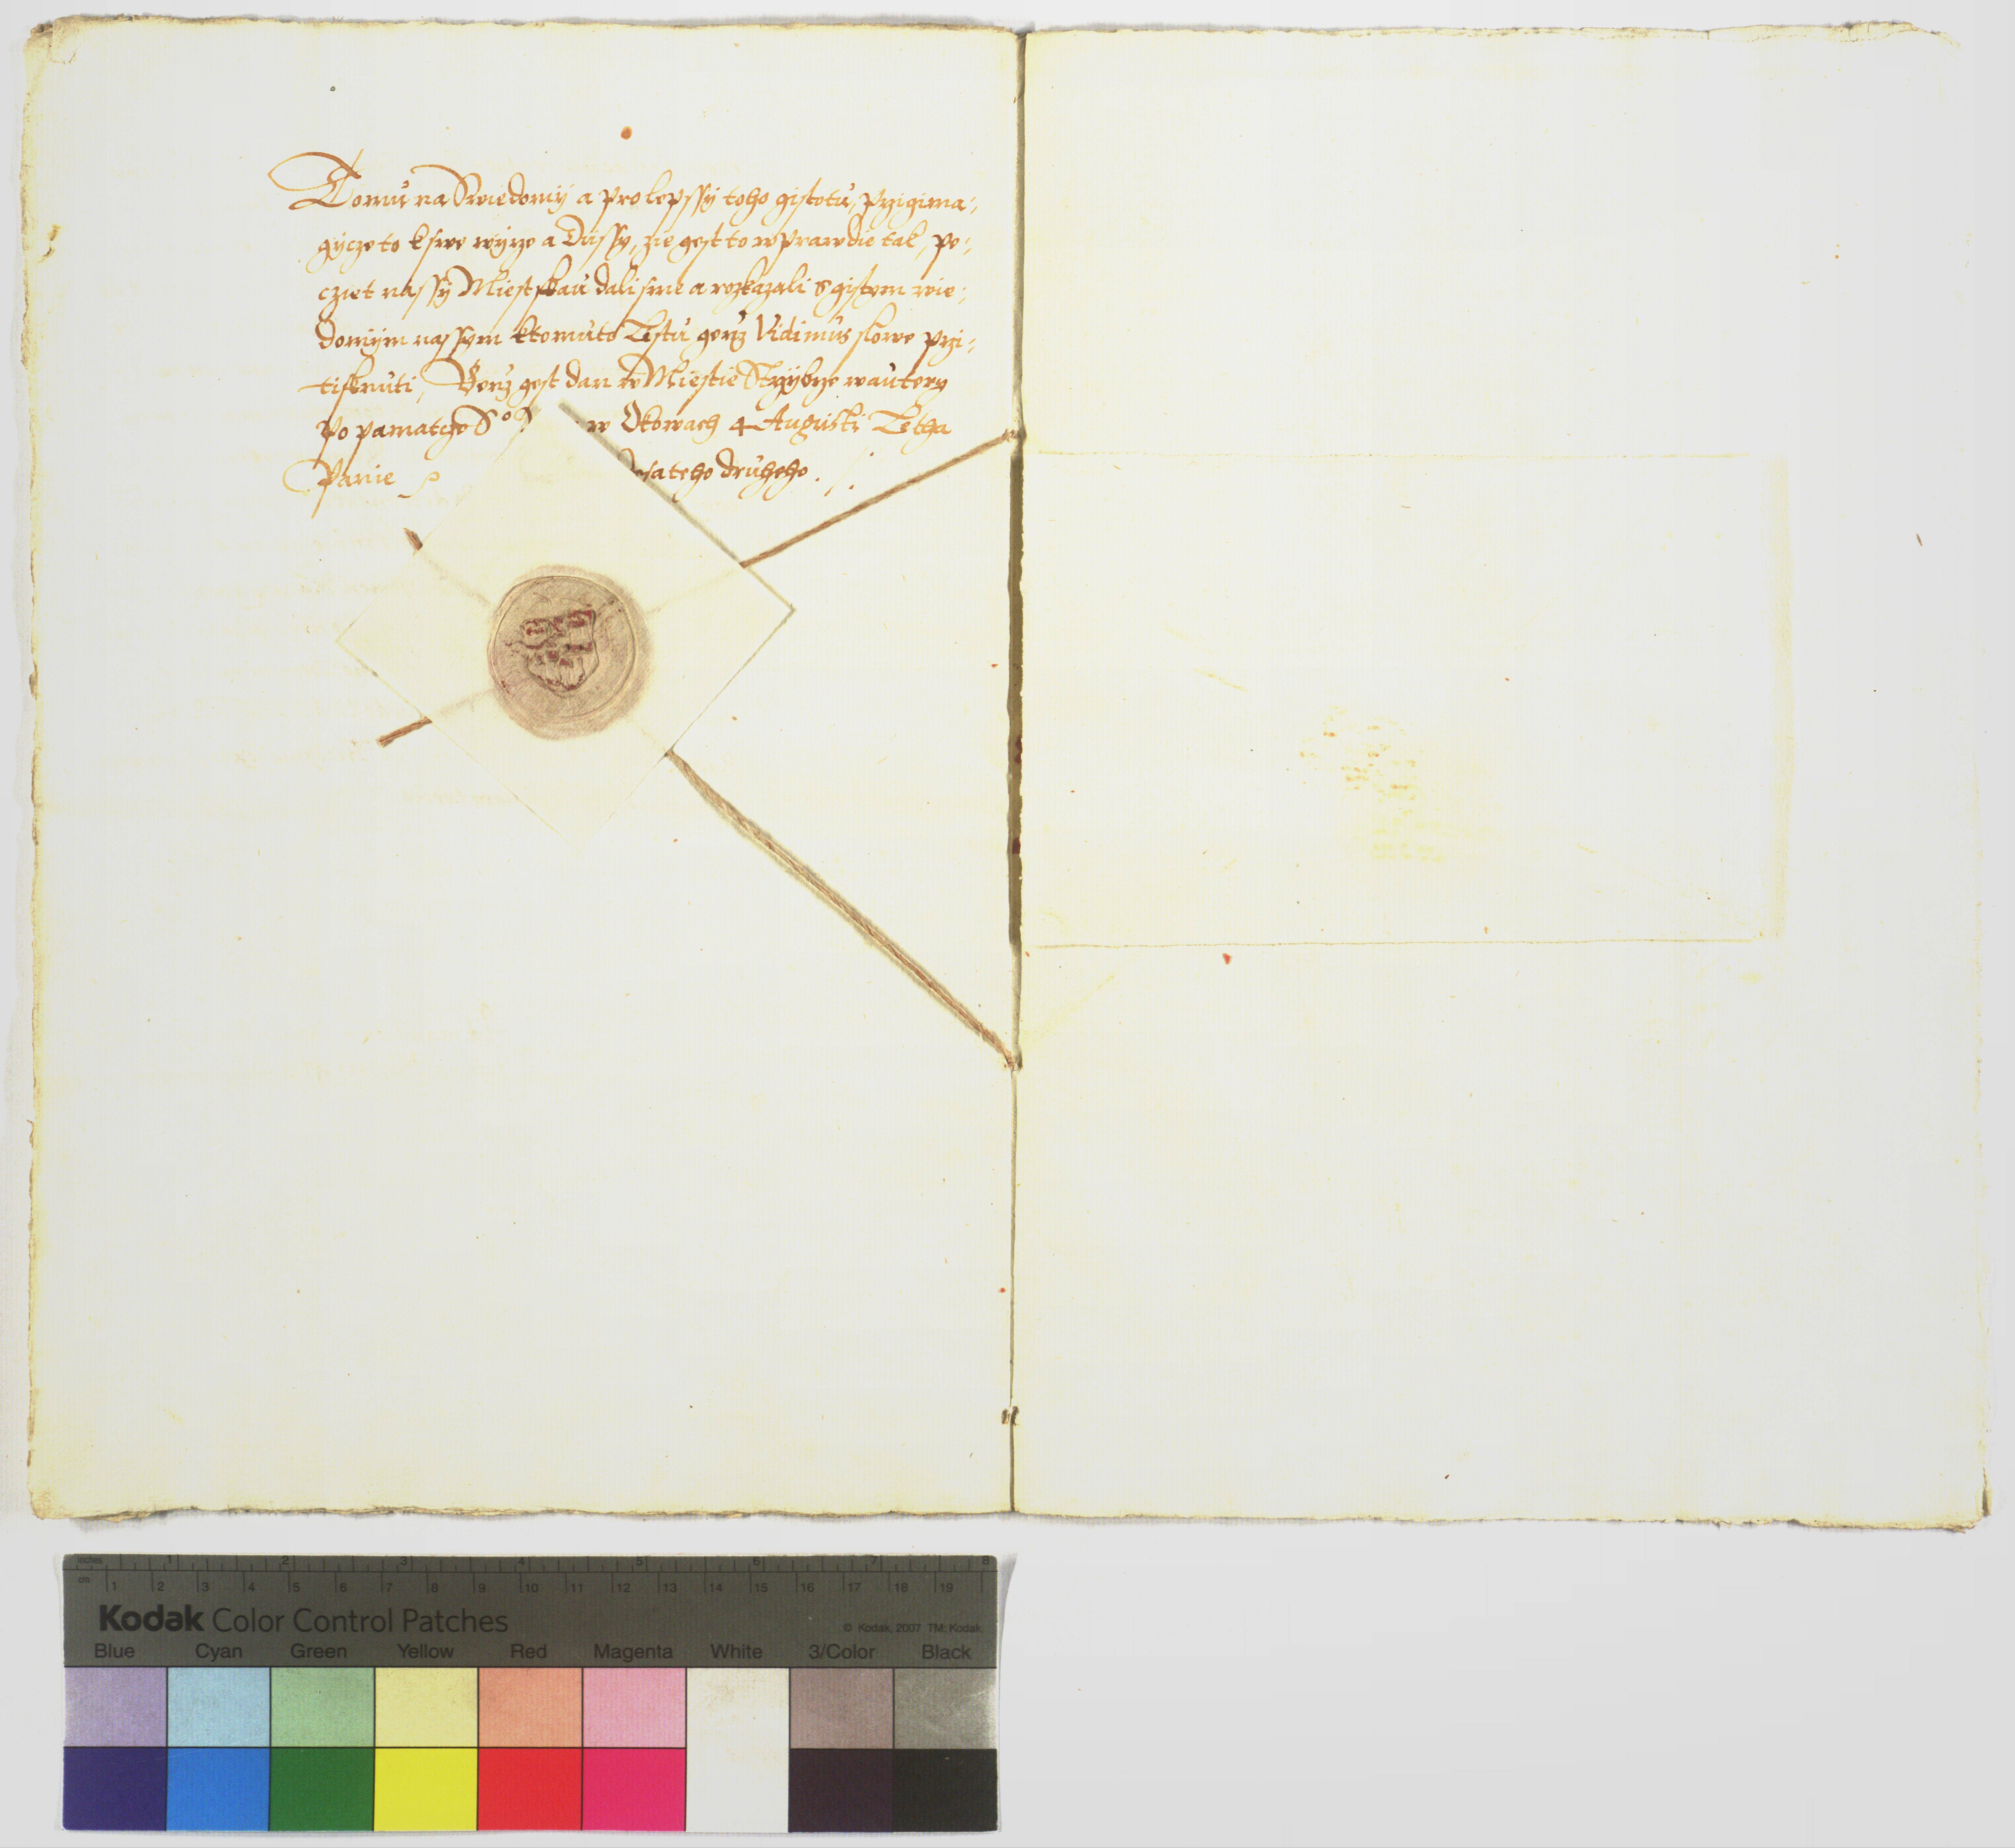 Tomu na Swiedomij a pro lepssy toho gistotu, przigima-
gycze to k swe wyrze a Dussy, zie gest to w prawdie tak, pe-
cziet nassy Miestskau dali sme a rozkazali s gistym wie-
domijm nassym k tomuto Listu genz Vidimus slowe przi-
tisknuti, Genz gest dan w Miestie Strzybrze w auterg
Po pamatcze S° w Okowach 4 Augusti Letha
Panie desateho druheho.
inches 1 2 3 4 5 6 7 8
cm 1 2 3 4 5 6 7 8 9 10 11 12 13 14 15 16 17 18 19
Kodak Color Control Patches
© Kodak, 2007 TM: Kodak
Blue Cyan Green Yellow Red Magenta White 3/Color Black